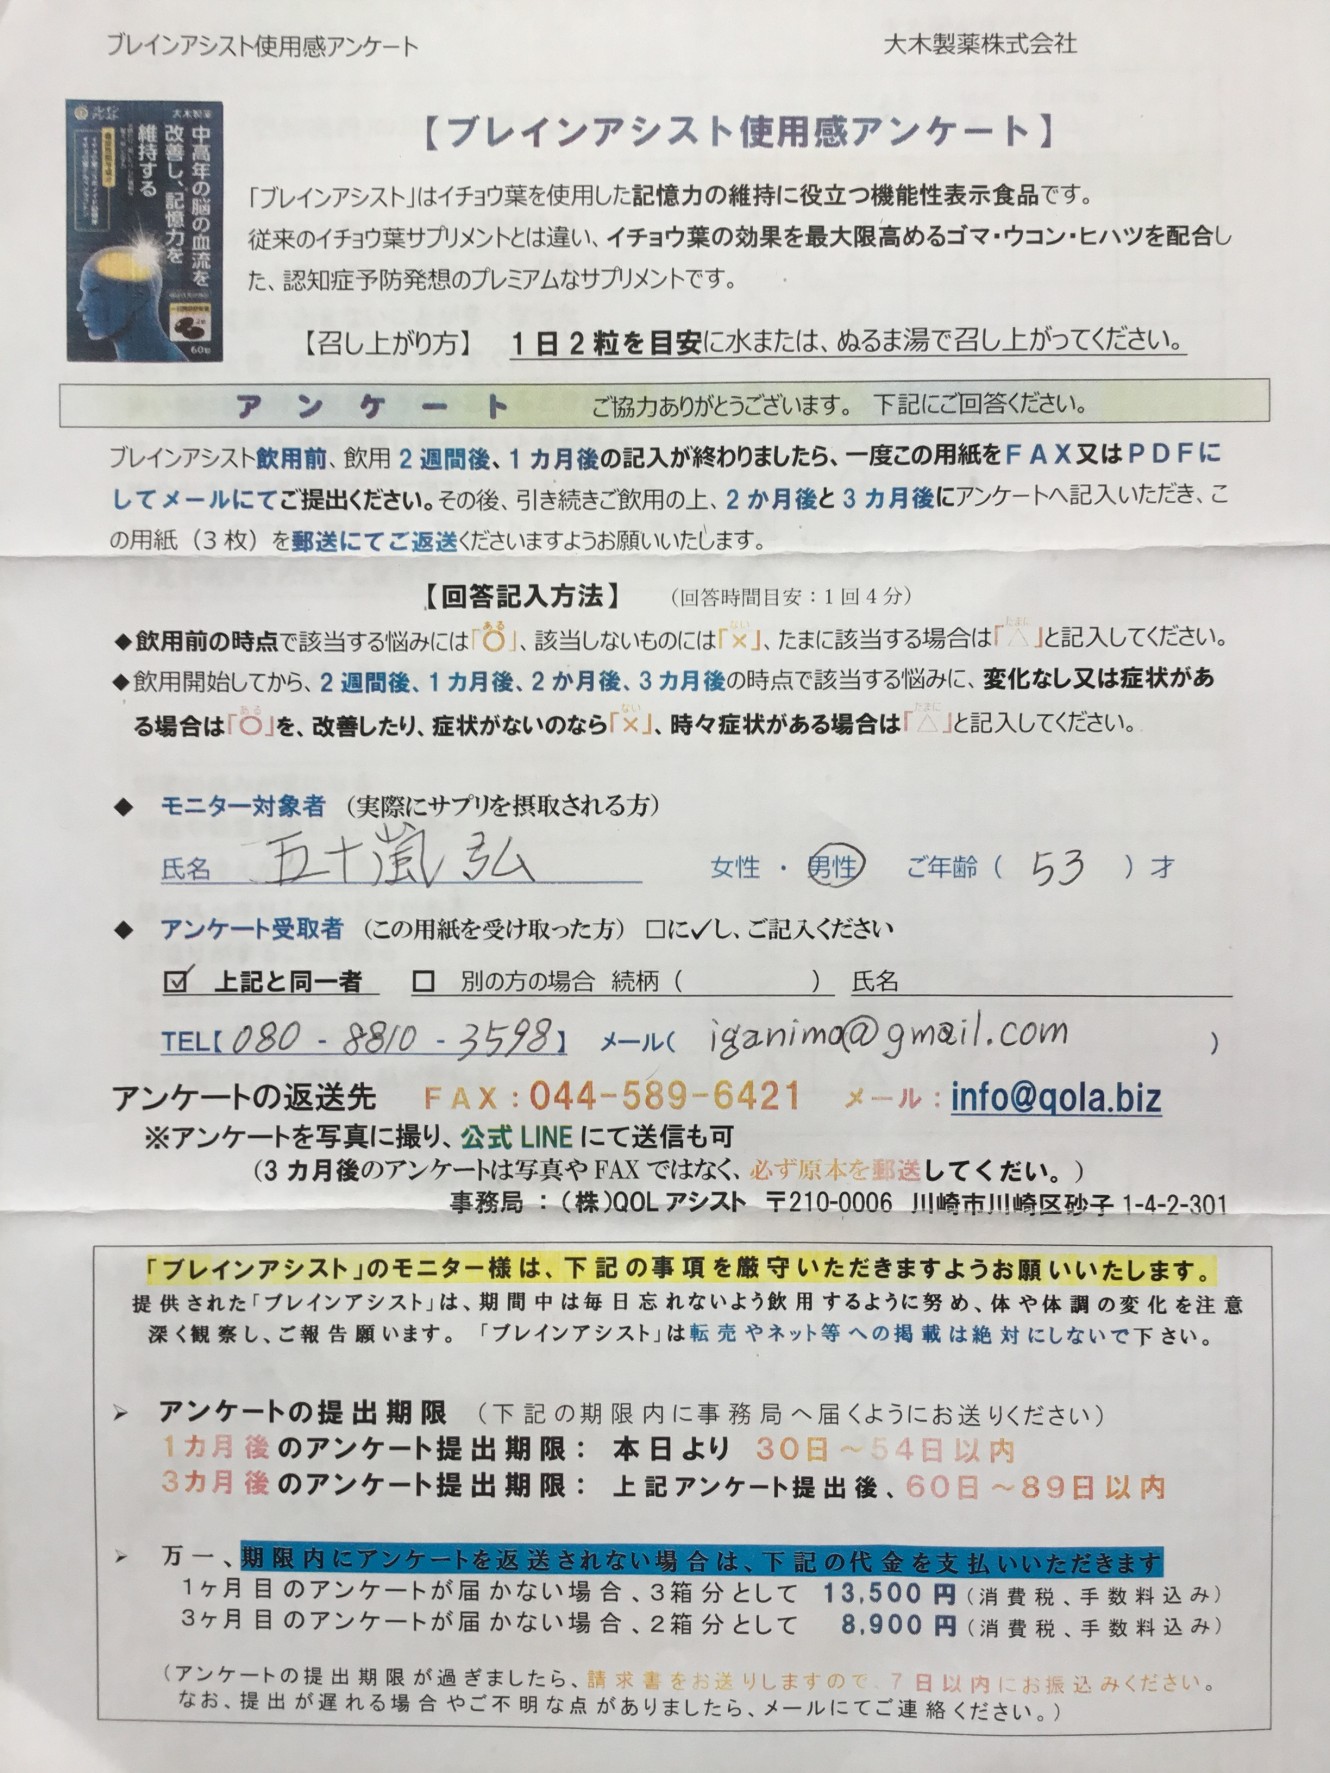 ブレインアシスト使用感アンケート 大木製薬株式会社
【ブレインアシスト使用感アンケート】
大木製薬
中高年の脳の血流を
改善し、記憶力を
維持する
60粒
「ブレインアシスト」はイチョウ葉を使用した記憶力の維持に役立つ機能性表示食品です。
従来のイチョウ葉サプリメントとは違い、イチョウ葉の効果を最大限高めるゴマ・ウコン・ヒハツを配合し
た、認知症予防発想のプレミアムなサプリメントです。
【召し上がり方】 1日2粒を目安に水または、ぬるま湯で召し上がってください。
アンケート ご協力ありがとうございます。 下記にご回答ください。
ブレインアシスト飲用前、飲用2週間後、1カ月後の記入が終わりましたら、一度この用紙をFAX又はPDFに
してメールにてご提出ください。その後、引き続きご飲用の上、2か月後と3カ月後にアンケートへ記入いただき、こ
の用紙（3枚）を郵送にてご返送くださいますようお願いいたします。
【回答記入方法】 （回答時間目安：1回4分）
◆飲用前の時点で該当する悩みには「〇」、該当しないものには「×」、たまに該当する場合は「△」と記入してください。
◆飲用開始してから、2週間後、1カ月後、2か月後、3カ月後の時点で該当する悩みに、変化なし又は症状があ
る場合は「〇」を、改善したり、症状がないのなら「×」、時々症状がある場合は「△」と記入してください。
◆ モニター対象者 （実際にサプリを摂取される方）
氏名 五十嵐 弘 女性 ・ 男性 ご年齢（ 53 ）才
◆ アンケート受取者 （この用紙を受け取った方） □に✓し、ご記入ください
☑ 上記と同一者 □ 別の方の場合 続柄（ ） 氏名
TEL【 080 - 8810 - 3598 】 メール（ iganima@gmail.com ）
アンケートの返送先 FAX：044-589-6421 メール：info@qola.biz
※アンケートを写真に撮り、公式LINEにて送信も可
（3カ月後のアンケートは写真やFAXではなく、必ず原本を郵送してくだい。）
事務局 ：（株）QOLアシスト 〒210-0006 川崎市川崎区砂子1-4-2-301
「ブレインアシスト」のモニター様は、下記の事項を厳守いただきますようお願いいたします。
提供された「ブレインアシスト」は、期間中は毎日忘れないよう飲用するように努め、体や体調の変化を注意
深く観察し、ご報告願います。「ブレインアシスト」は転売やネット等への掲載は絶対にしないで下さい。
➢ アンケートの提出期限 （下記の期限内に事務局へ届くようにお送りください）
1カ月後のアンケート提出期限： 本日より 30日～54日以内
3カ月後のアンケート提出期限： 上記アンケート提出後、60日～89日以内
➢ 万一、期限内にアンケートを返送されない場合は、下記の代金を支払いいただきます
1ヶ月目のアンケートが届かない場合、3箱分として 13,500円（消費税、手数料込み）
3ヶ月目のアンケートが届かない場合、2箱分として 8,900円（消費税、手数料込み）
（アンケートの提出期限が過ぎましたら、請求書をお送りしますので、7日以内にお振込みください。
なお、提出が遅れる場合やご不明な点がありましたら、メールにてご連絡ください。）